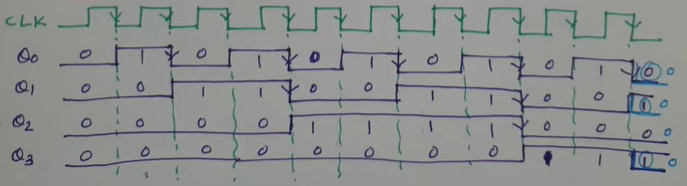 CLK
Q0 0 1 0 1 0 1 0 1 0 1 0 0
Q1 0 0 1 1 0 0 1 1 0 0 1 0
Q2 0 0 0 0 1 1 1 1 0 0 0 0
Q3 0 0 0 0 0 0 0 0 1 1 1 0